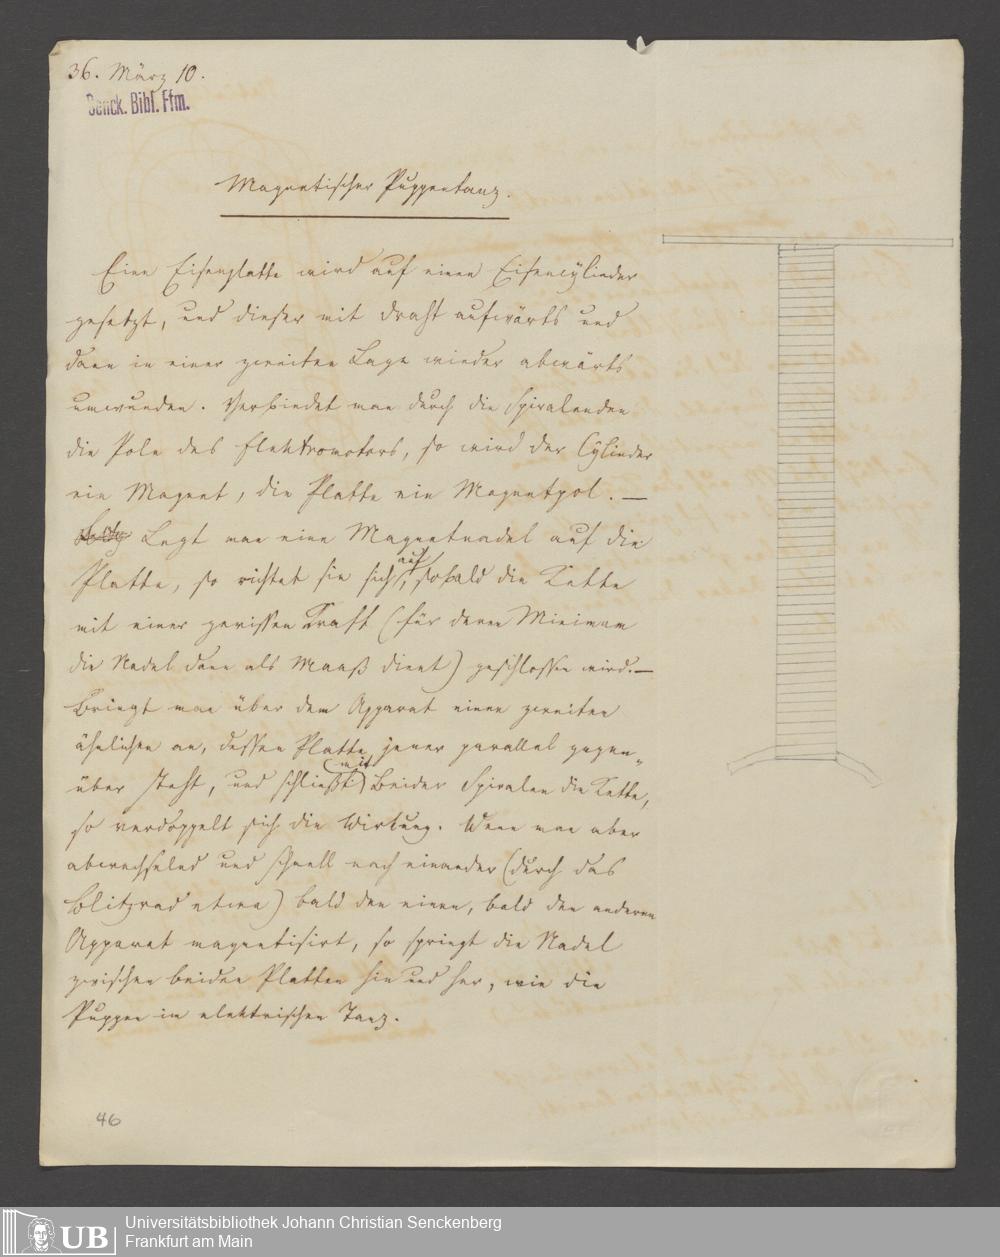 36. März 10.
Senck. Bibl. Ffm.
Magnetischer Puppentanz.
Eine Eisenplatte wird auf einen Eisencylinder
gesetzt, und dieser mit Draht aufwärts und
dann in einer zweiten Lage wieder abwärts
umwunden. Verbindet man durch die Spiralenden
die Pole des Elektromotors, so wird der Cylinder
ein Magnet, die Platte ein Magnetpol. —
Legt man eine Magnetnadel auf die
Platte, so richtet sie sich auf, sobald die Kette
mit einer gewissen Kraft (für deren Minimum
die Nadel dann als Maaß dient) geschlossen wird. —
Bringt man über dem Apparat einen zweiten
ähnlichen an, dessen Platte jener parallel gegen-
über steht, und schließt (mit) beider Spiralen die Kette,
so verdoppelt sich die Wirkung. Wenn man aber
abwechselnd und schnell nach einander (durch das
Blitzrad etwa) bald den einen, bald den anderen
Apparat magnetisirt, so springt die Nadel
zwischen beiden Platten hin und her, wie die
Puppen im elektrischen Tanz.
46
UB
Universitätsbibliothek Johann Christian Senckenberg
Frankfurt am Main